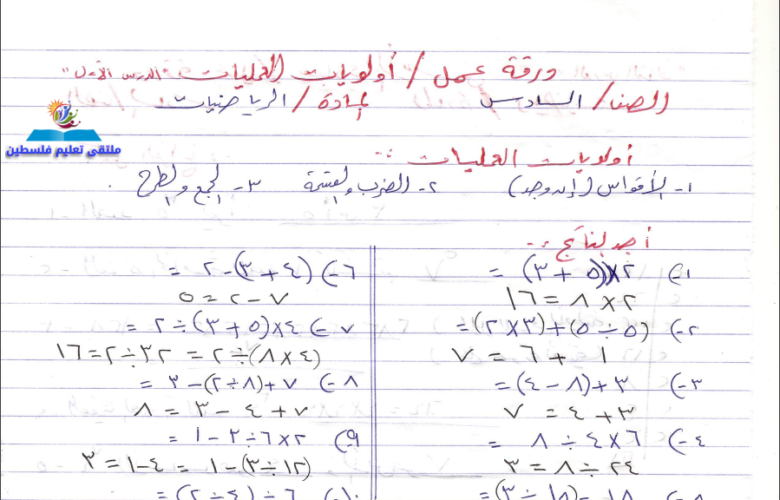 ورقة عمل / أولويات العمليات "الدرس الأول"
الصف / السادس المادة / الرياضيات
ملتقى تعليم فلسطين
أولويات العمليات :-
١- الأقواس (إن وجد) ٢- الضرب والقسمة ٣- الجمع والطرح .
أجد الناتج :-
١-) ٢×(٥ + ٣) =
٢ × ٨ = ١٦
٢-) (٥ ÷ ٥)+(٣×٢) =
١ + ٦ = ٧
٣-) ٣+(٨ - ٤) =
٣+ ٤ = ٧
٤-) ٦×٤ ÷ ٨ =
٢٤ ÷ ٨ = ٣
٦-) (٤ + ٣)-٢ =
٧ - ٢ = ٥
٧-) ٤×(٥ + ٣)÷٢ =
(٤ × ٨)÷٢ = ٣٢÷٢ = ١٦
٨-) ٧+(٨÷٢)-٣ =
٧+ ٤ - ٣ = ٨
٩) ٢×٦÷٣-١ =
(١٢÷٣)-١ = ٤-١ = ٣
١٠-) ٦÷(٤÷٢) =